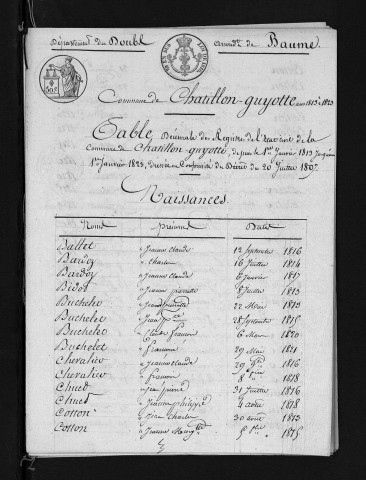 Département du Doubs Arrondt. de Baume.
Commune de Chatillon-guyotte années 1813 à 1823
Table Décennale des Registres de l'état civil de la
Commune de Chatillon-guyotte, depuis le 1er Janvier 1813 jusqu'au
1er Janvier 1823, dressée en Conformité du Décret du 20 Juillet 1807.
Naissances.
Noms Prénoms Dates
Ballet Jeanne Claude 12 Septembre 1816
Bardoy Charles 16 Juillet 1814
Bardoy Jeanne Claude 6 Janvier 1817
Bidot Jeanne pierrette 8 Juillet 1813
Buchelet Jeanne 22 Mai 1813
Buchelet 28 Septembre 1815
Buchelet Claude francois 6 Mars 1820
Buchelet francois 29 Mai 1821
Chevalier Jeanne Claude 29 1816
Chevalier francois 8 1818
Chuet Jean pierre 31 Juillet 1816
Chuet Jeanne philippe 4 aout 1818
Cotton Charles 30 aout 1813
Cotton Jeanne Margte 5 1815